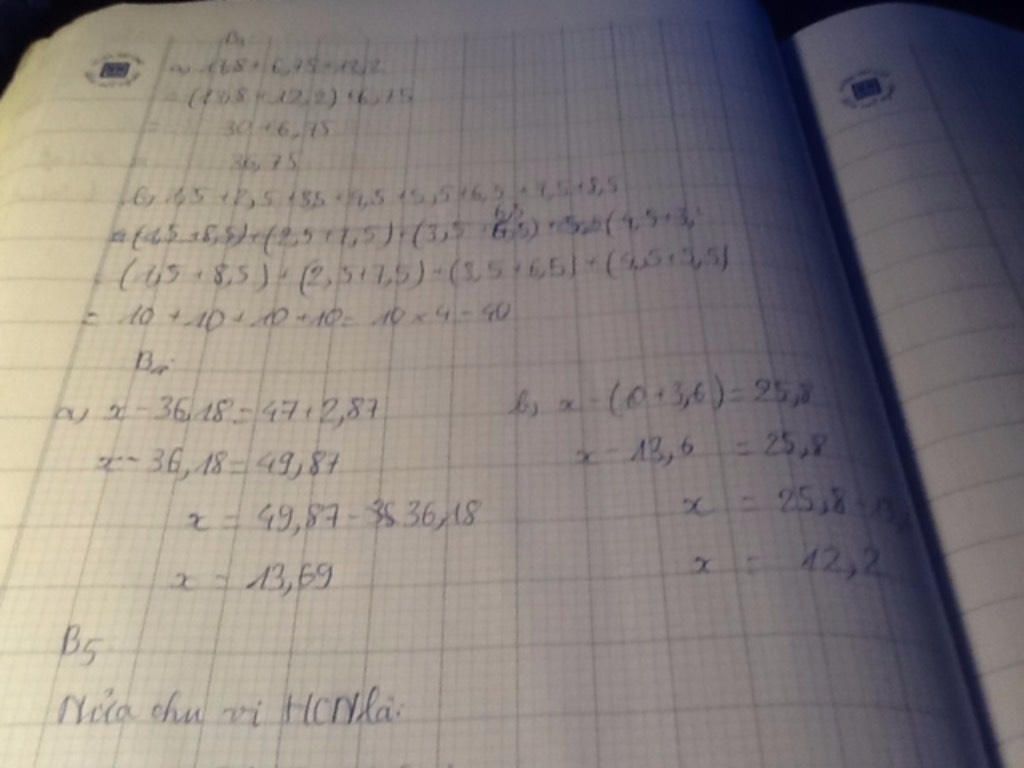 B3
a, 17,8 + 6,75 + 12,2
= (17,8 + 12,2) + 6,75
= 30 + 6,75
= 36,75
b, 1,5 + 2,5 + 3,5 + 4,5 + 5,5 + 6,5 + 7,5 + 8,5
= (1,5 + 8,5) + (2,5 + 7,5) + (3,5 + 6,5) + (4,5 +
= (1,5 + 8,5) + (2,5 + 7,5) + (3,5 + 6,5) + (4,5 + 5,5)
= 10 + 10 + 10 + 10 = 10 x 4 = 40
B4
a, x - 36,18 = 47 + 2,87
x - 36,18 = 49,87
x = 49,87 - 36,18
x = 13,69
b, x - (0 + 3,6) = 25,8
x - 13,6 = 25,8
x = 25,8 -
x = 12,2
B5
Nửa chu vi HCN là: